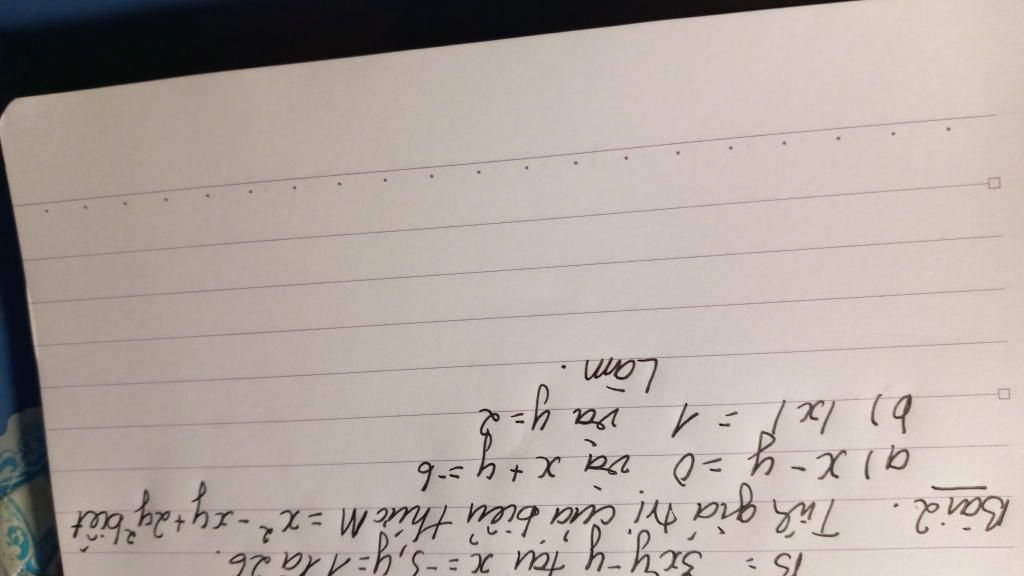 B = 3x²y - y tại x = -5, y = 1 là 26.
Bài 2. Tính giá trị của biểu thức M = x² - xy + 2y biết
a) x - y = 0 và x + y = 6
b) |x| = 1 và y = 2
Làm.